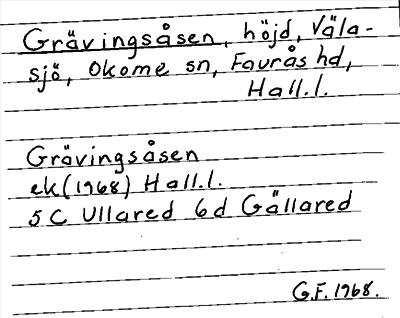 Grävingsåsen, höjd, Väla-
sjö, Okome sn, Faurås hd,
Hall.l.
Grävingsåsen
ek (1968) Hall.l.
5 C Ullared 6d Gällared
G.F. 1968.